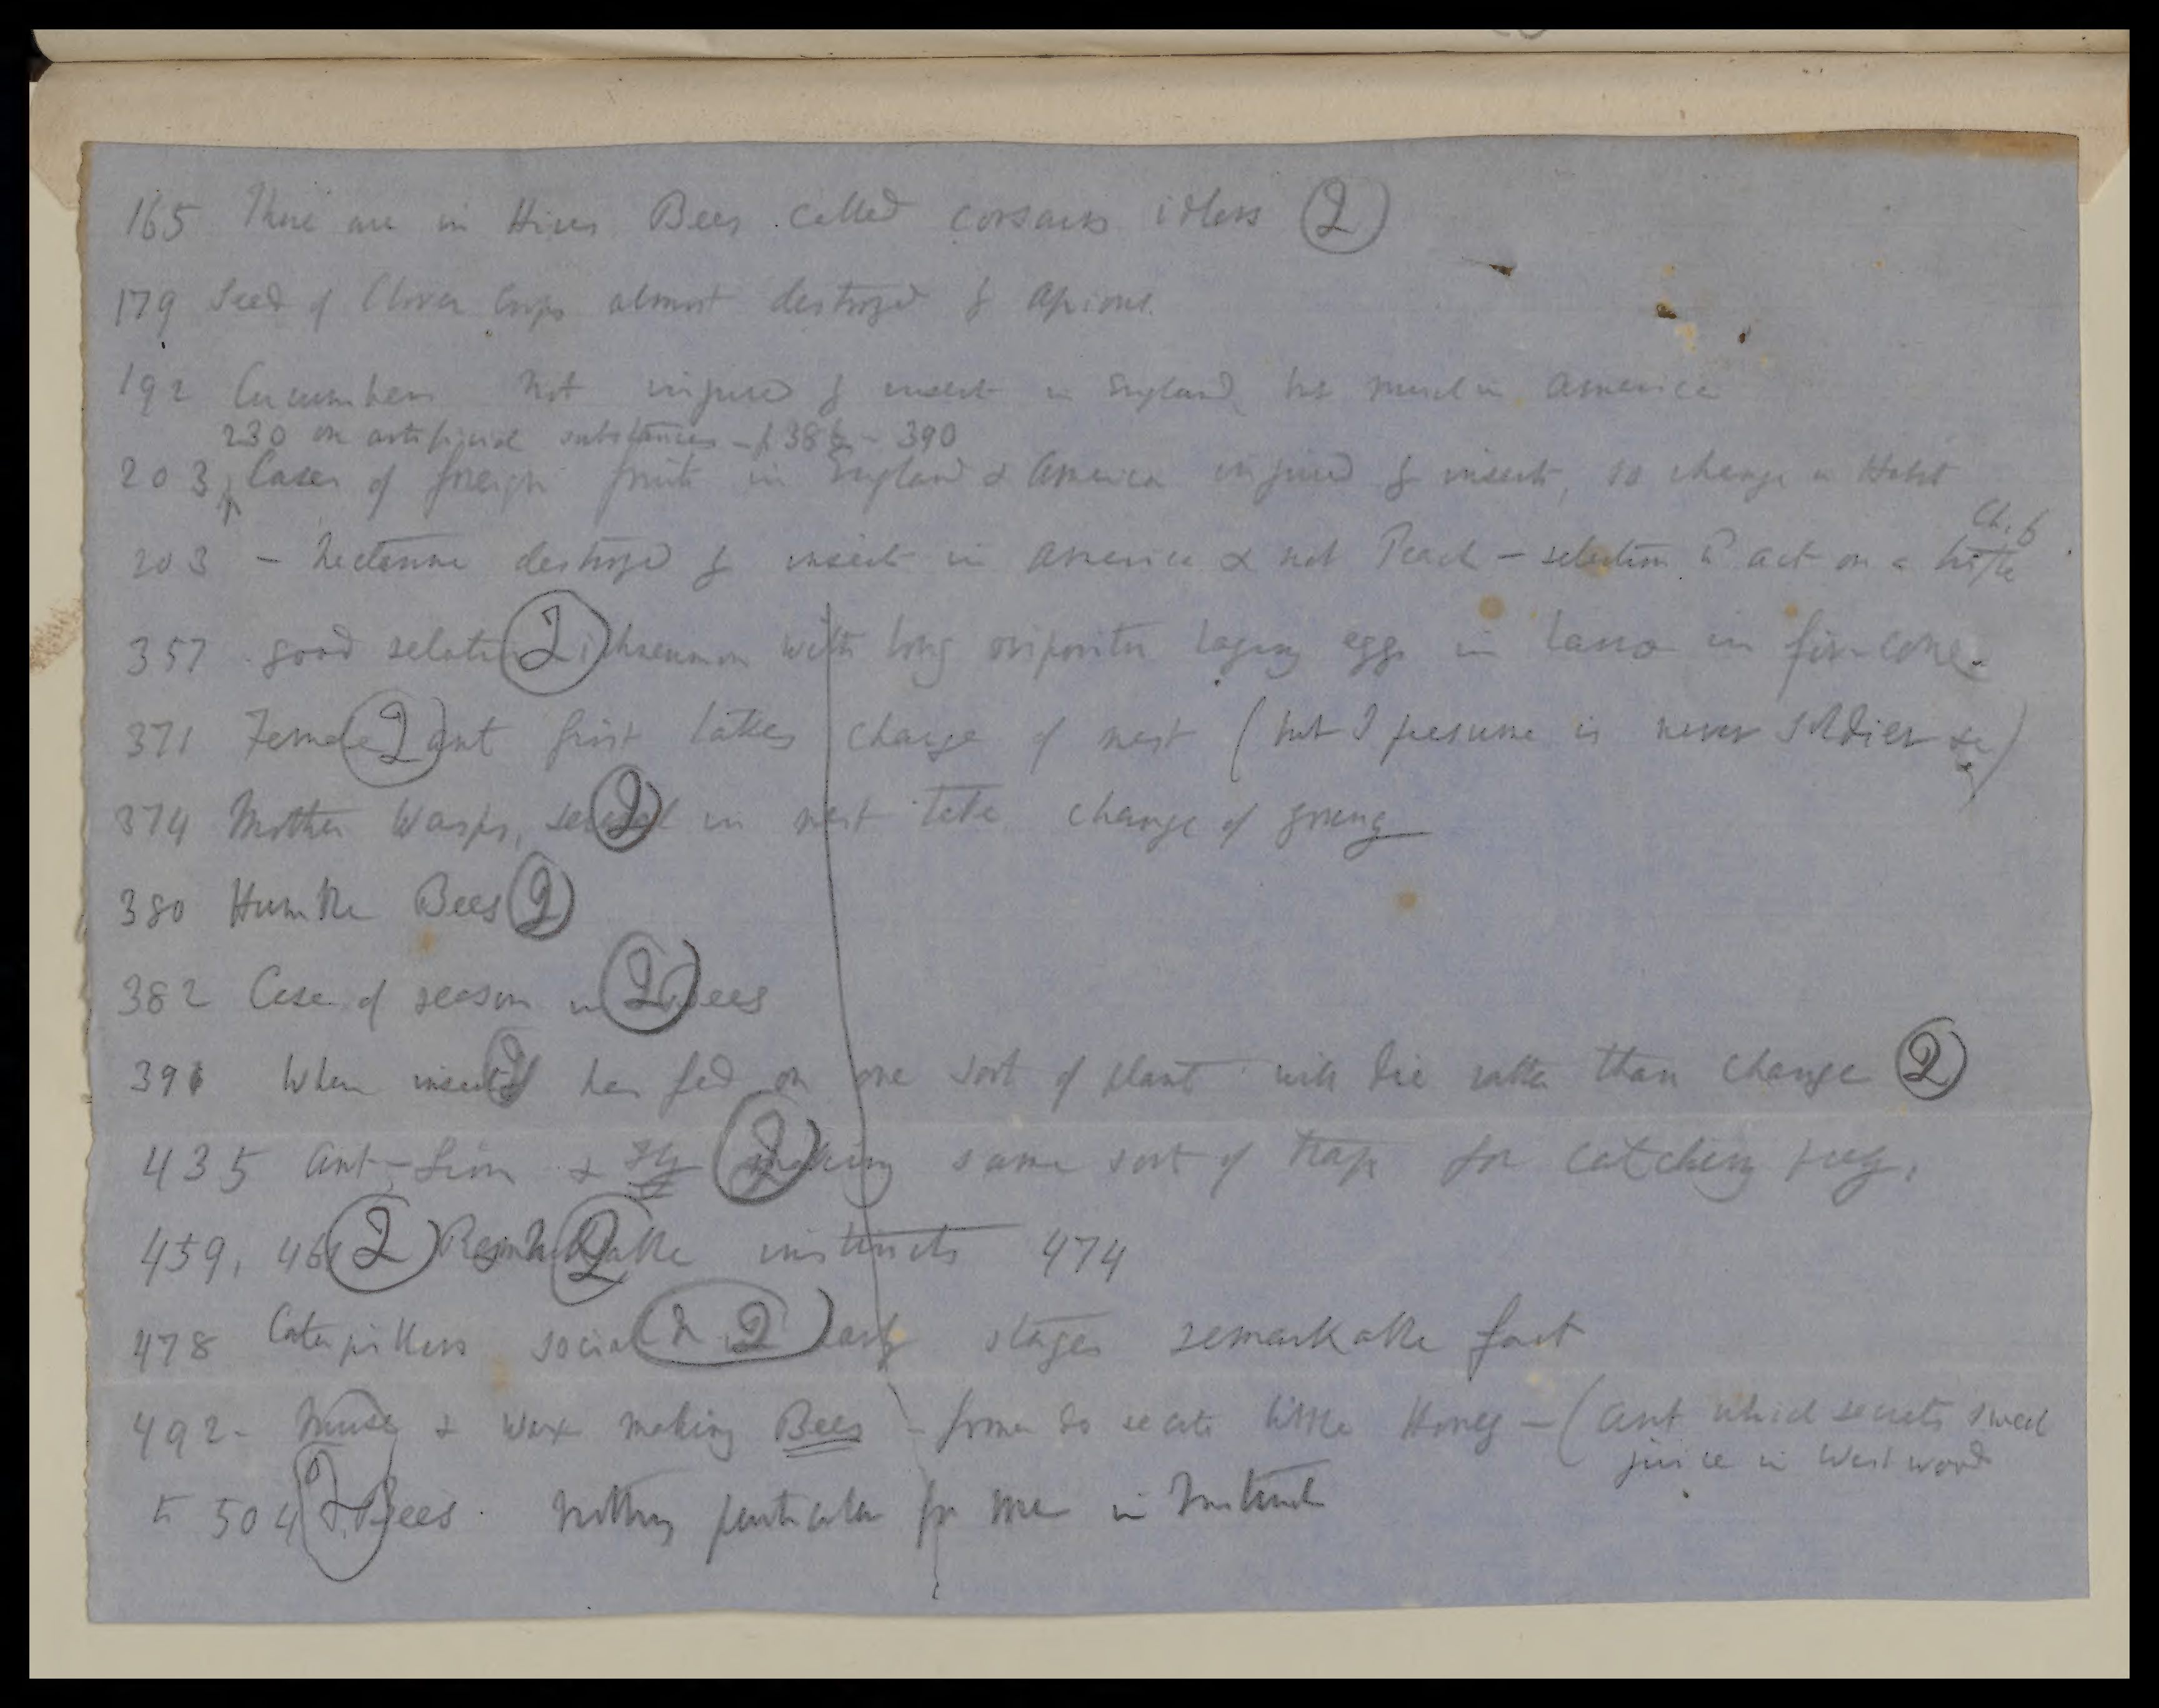 165 There are in Hives Bees called corsairs idlers (2)
179 Seed of Clover Crops almost destroyed by Apions.
192 Cucumbers not injured by insect in England, but much in America
230 on artificial substances - p 38 - 390
203 Cases of foreign fruits in England & America injured by insects, so change in Habit
Ch. 6
203 - Nectarine destroyed by insect in America & not Peach - selection to act on a trifle
357 good relation (2) ichneumon with long ovipositor laying eggs in larva in fir-cone.
371 Female (2) ant first takes charge of nest (but I presume is never soldier &c)
374 Mother Wasps, several (2) in nest take charge of young
380 Humble Bees (2)
382 Case of reason in (2) Bees
391 When insect (2) has fed on one sort of plant will die rather than change (2)
435 Ant-Lion & Fly (2) making same sort of trap for catching prey.
459, 461 (2) Remarkable (2) instincts 474
478 Caterpillars social in (2) early stages remarkable fact
492- Nurse & Wax making Bees - former do secrete little Honey - (ant which secrets sweet
juice in Westwood
to 504 (2) Bees. Nothing particular for me in Instinct